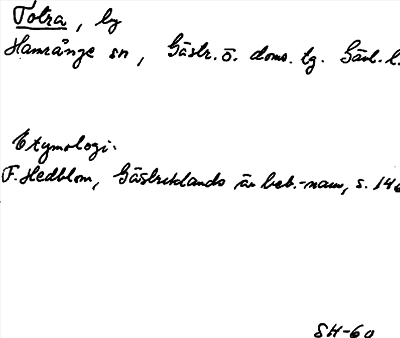 Totra, by
Hamrånge sn, Gästr. ö. doms. tg. Gävl. l.
Etymologi:
F. Hedblom, Gästriklands äv beb.-namn, s. 146
SH-60